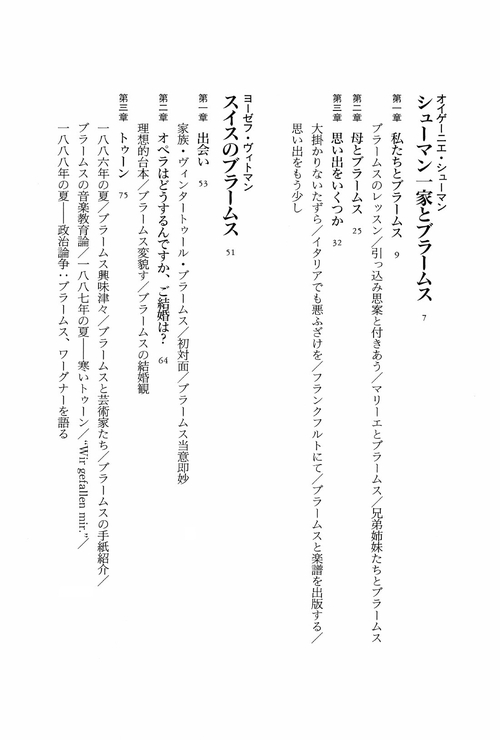 オイゲーニエ・シューマン
シューマン一家とブラームス 7
第一章 私たちとブラームス 9
ブラームスのレッスン／引っ込み思案と付きあう／マリーエとブラームス／兄弟姉妹たちとブラームス
第二章 母とブラームス 25
第三章 思い出をいくつか 32
大掛かりないたずら／イタリアでも悪ふざけを／フランクフルトにて／ブラームスと楽譜を出版する／
思い出をもう少し
ヨーゼフ・ヴィトマン
スイスのブラームス 51
第一章 出会い 53
家族・ヴィンタートゥール・ブラームス／初対面／ブラームス当意即妙
第二章 オペラはどうするんですか、ご結婚は？ 64
理想的台本／ブラームス変貌す／ブラームスの結婚観
第三章 トゥーン 75
一八八六年の夏／ブラームス興味津々／ブラームスと芸術家たち／ブラームスの手紙紹介／
ブラームスの音楽教育論／一八八七年の夏——寒いトゥーン／“Wir gefallen mir.”／
一八八八年の夏——政治論争：ブラームス、ワーグナーを語る